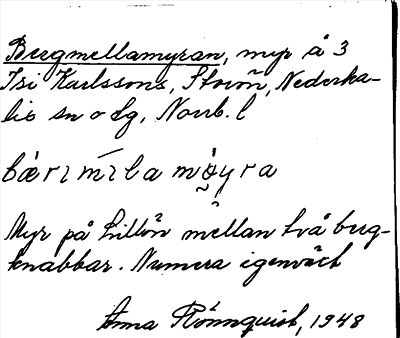 Bergmellamyran, myr å 3
Isi Karlssons, Storön, Nederka-
lix sn o lg, Norrb. l
bǽrımīla mò̯yra
Myr på Lillön mellan två berg-
knabbar. Numera igenväxt
Anna Rönnquist, 1948